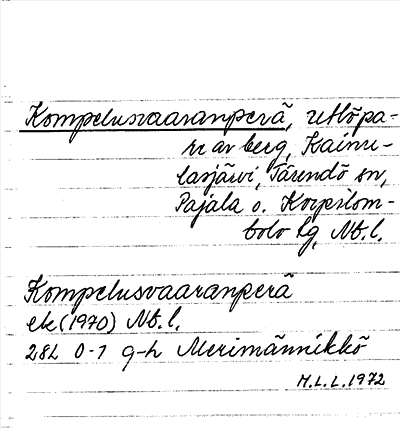 Kompelusvaaranperä, utlöpa-
re av berg, Kainu-
lasjärvi, Tärendö sn,
Pajala o. Korpilom-
bolo tg, Nb. l.
Kompelusvaaranperä
ek (1970) Nb. l.
28L 0-1 g-h Merimännikkö
M.L.L. 1972